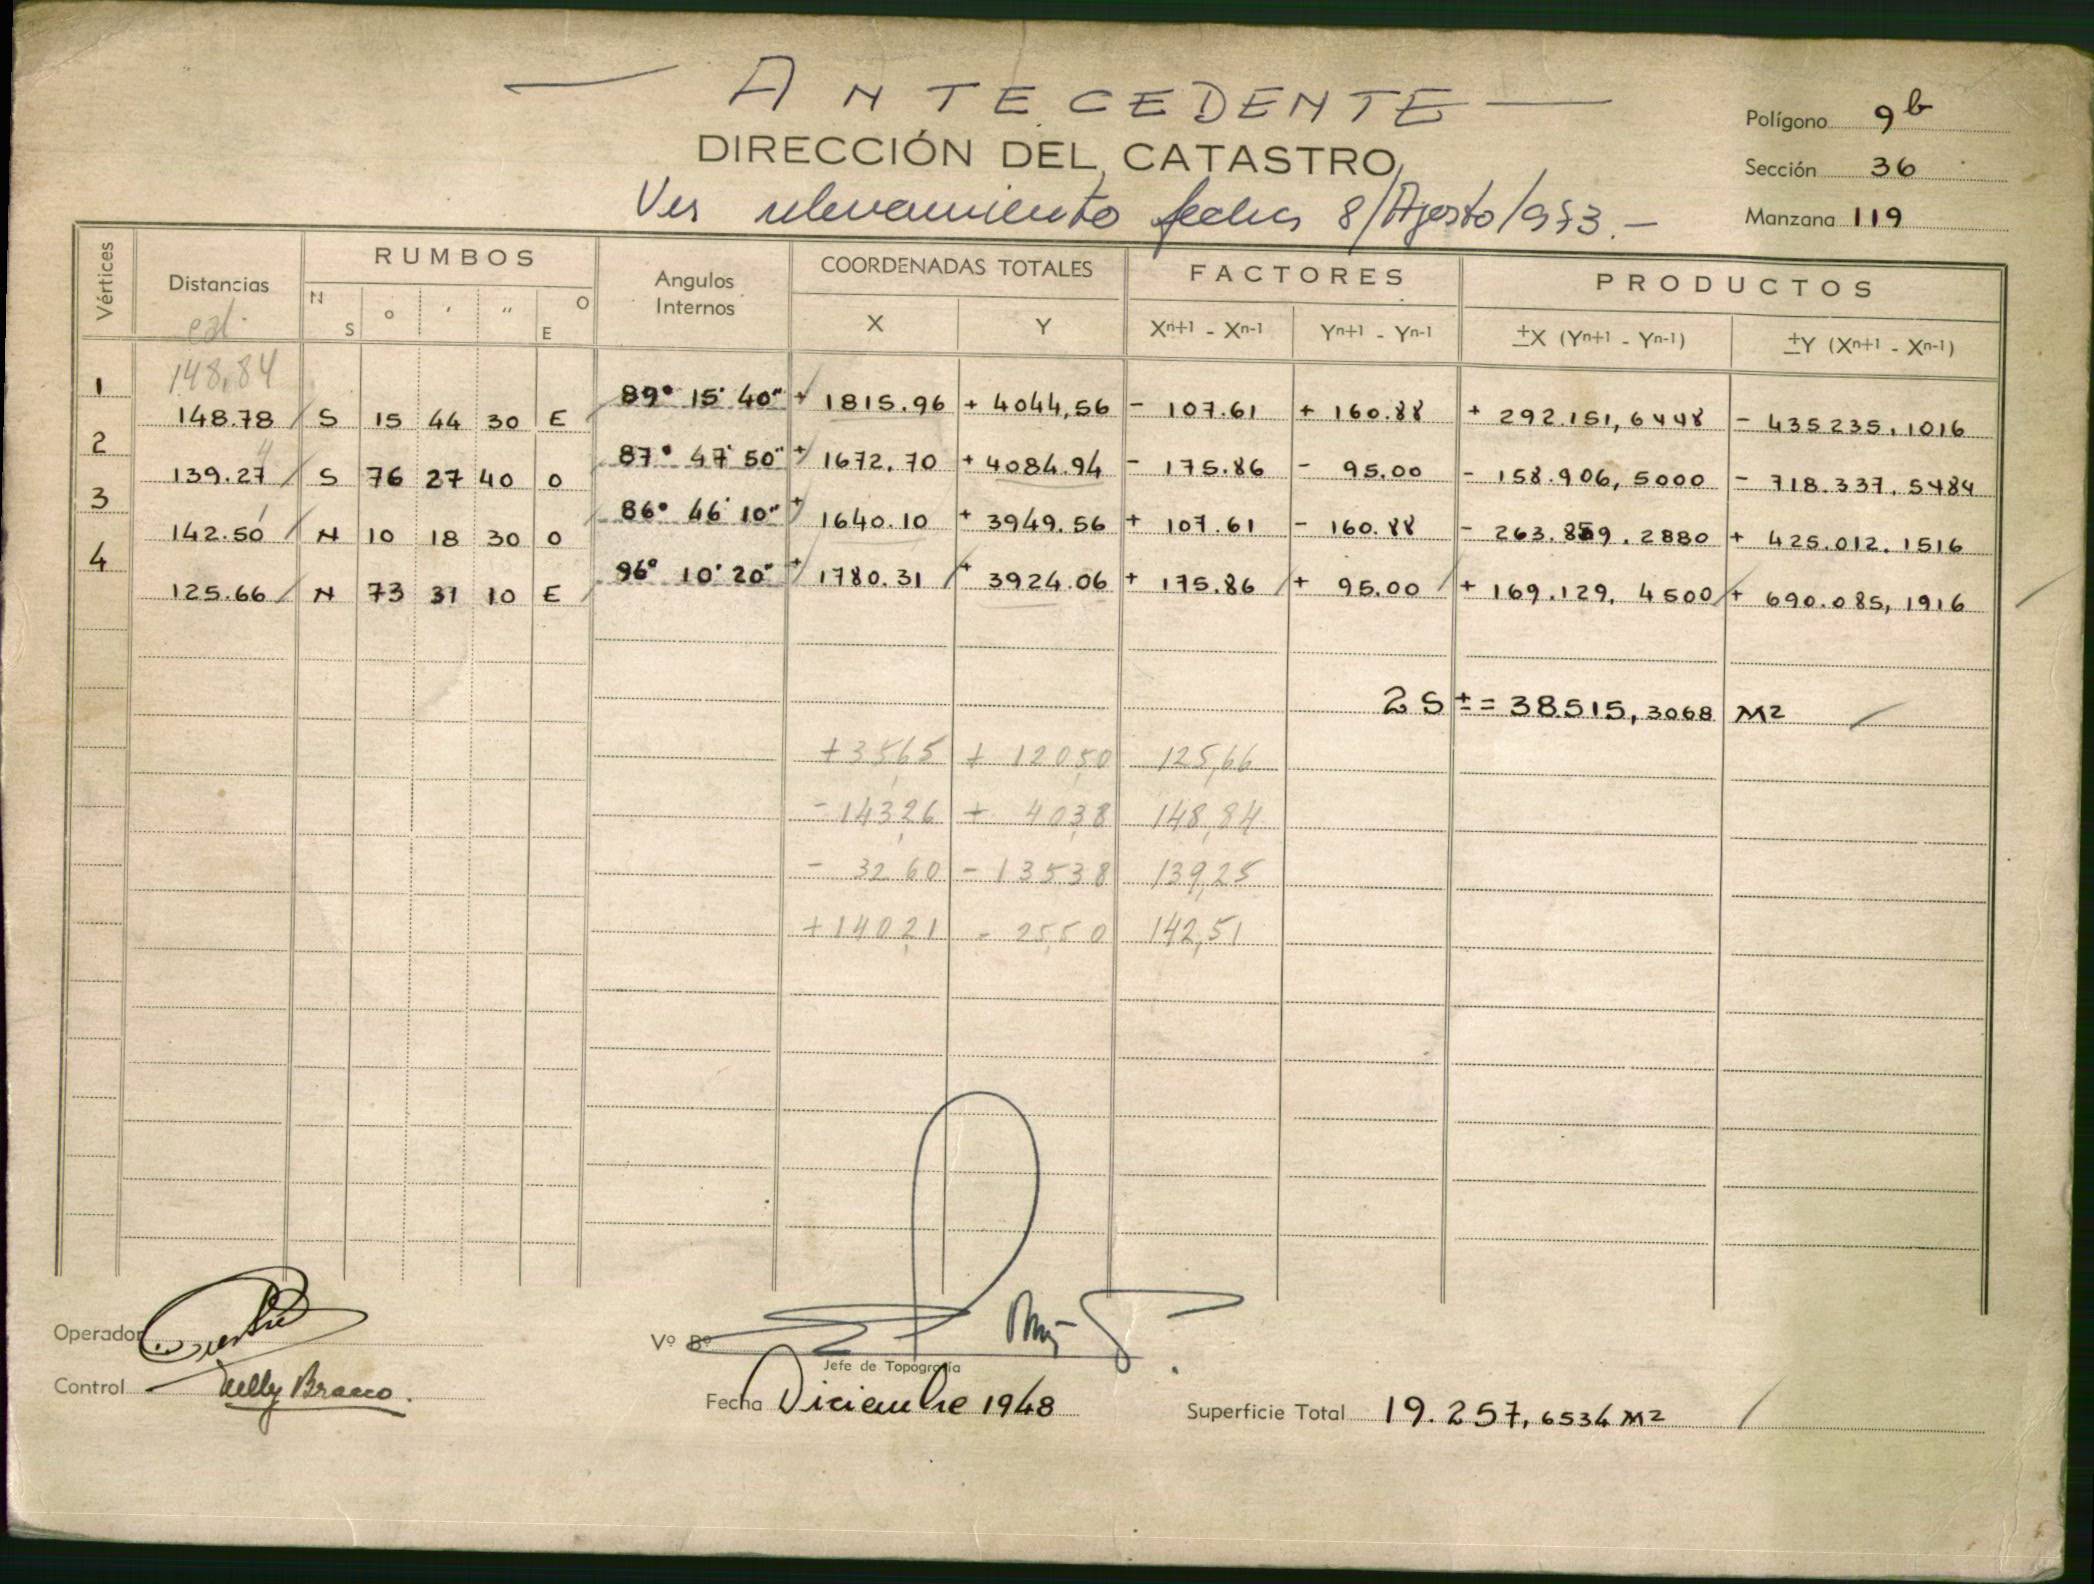 — ANTECEDENTE —
DIRECCIÓN DEL CATASTRO
Ver relevamiento fecha 8/Agosto/953.-
Polígono 9 b
Sección 36
Manzana 119
Vértices Distancias RUMBOS Angulos Internos COORDENADAS TOTALES FACTORES PRODUCTOS
N S o ' " O E X Y Xn+1 - Xn-1 Yn+1 - Yn-1 ±X (Yn+1 - Yn-1) ±Y (Xn+1 - Xn-1)
148,84
1 148.78 S 15 44 30 E 89° 15' 40" + 1815.96 + 4044,56 - 107.61 + 160.88 + 292.151,6448 - 435235.1016
2 139.27 S 76 27 40 O 87° 47' 50" + 1672.70 + 4084.94 - 175.86 - 95.00 - 158.906,5000 - 718.337.5484
3 142.50 N 10 18 30 O 86° 46' 10" + 1640.10 + 3949.56 + 107.61 - 160.88 - 263.859.2880 + 425.012.1516
4 125.66 N 73 31 10 E 96° 10' 20" + 1780.31 + 3924.06 + 175.86 + 95.00 + 169.129,4500 + 690.085,1916
2 S ± = 38515,3068 M2
+ 35,65 + 120,50 125,66
- 143,26 + 40,38 148,84
- 32,60 - 135,38 139,25
+ 140,21 - 25,50 142,51
Operador
Control Nelly Bracco.
Vº Bº
Jefe de Topografía
Fecha Diciembre 1948
Superficie Total 19.257,6534 M2